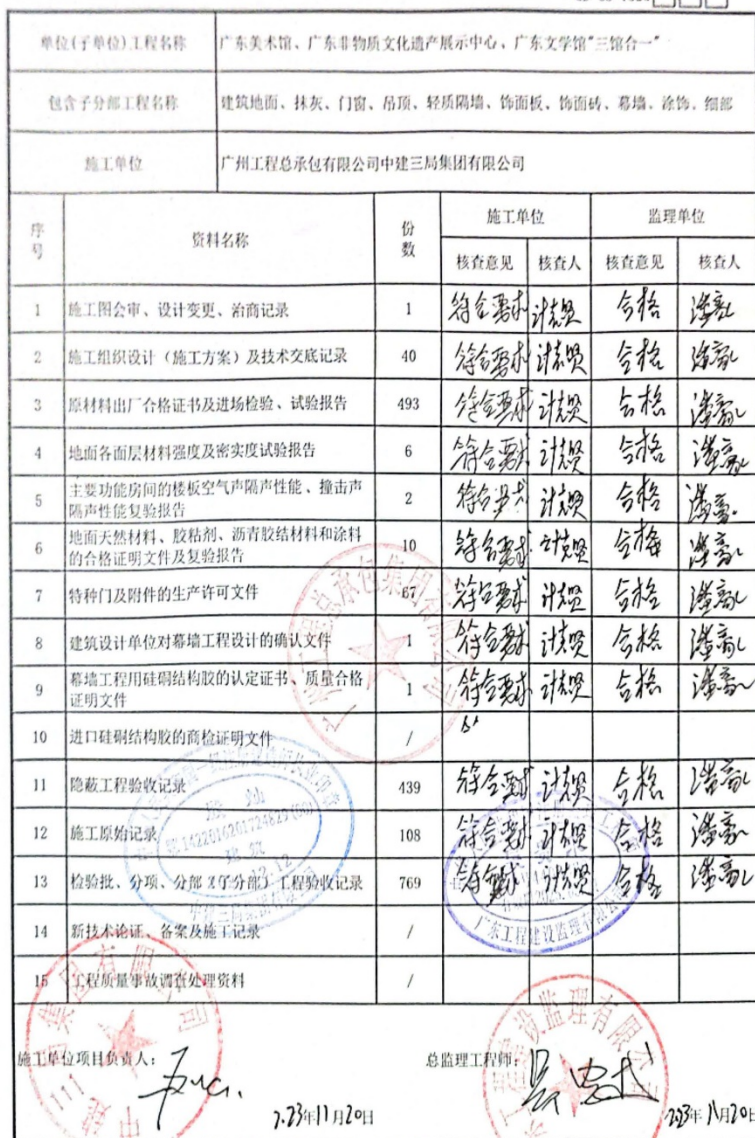 单位(子单位)工程名称 广东美术馆、广东非物质文化遗产展示中心、广东文学馆"三馆合一"
包含子分部工程名称 建筑地面、抹灰、门窗、吊顶、轻质隔墙、饰面板、饰面砖、幕墙、涂饰、细部
施工单位 广州工程总承包有限公司中建三局集团有限公司
序号 资料名称 份数 施工单位 监理单位
核查意见 核查人 核查意见 核查人
1 施工图会审、设计变更、洽商记录 1 符合要求 合格
2 施工组织设计（施工方案）及技术交底记录 40 符合要求 合格
3 原材料出厂合格证书及进场检验、试验报告 493 符合要求 合格
4 地面各面层材料强度及密实度试验报告 6 符合要求 合格
5 主要功能房间的楼板空气声隔声性能、撞击声
隔声性能复验报告 2 符合要求 合格
6 地面天然材料、胶粘剂、沥青胶结材料和涂料
的合格证明文件及复验报告 10 符合要求 合格
7 特种门及附件的生产许可文件 67 符合要求 合格
8 建筑设计单位对幕墙工程设计的确认文件 1 符合要求 合格
9 幕墙工程用硅硐结构胶的认定证书、质量合格
证明文件 1 符合要求 合格
10 进口硅硐结构胶的商检证明文件 /
11 隐蔽工程验收记录 439 符合要求 合格
12 施工原始记录 108 符合要求 合格
13 检验批、分项、分部（子分部）工程验收记录 769 符合要求 合格
14 新技术论证、备案及施工记录 /
15 工程质量事故调查处理资料 /
施工单位项目负责人： 总监理工程师：
2023年11月20日 2023年11月20日
广东工程建设监理有限公司